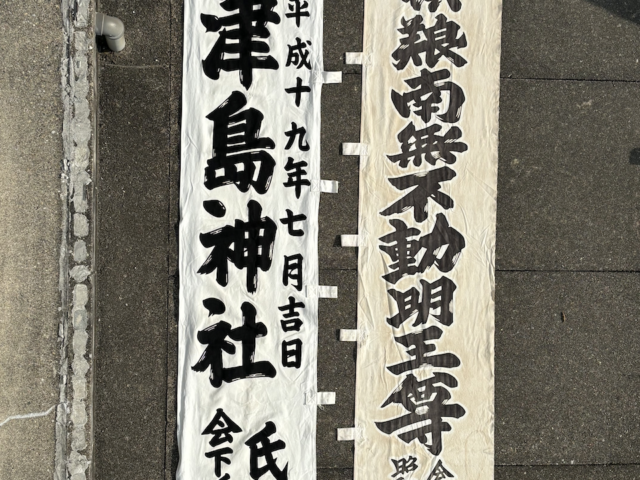 南無不動明王尊
会
照
平成十九年七月吉日
津島神社
氏
会下